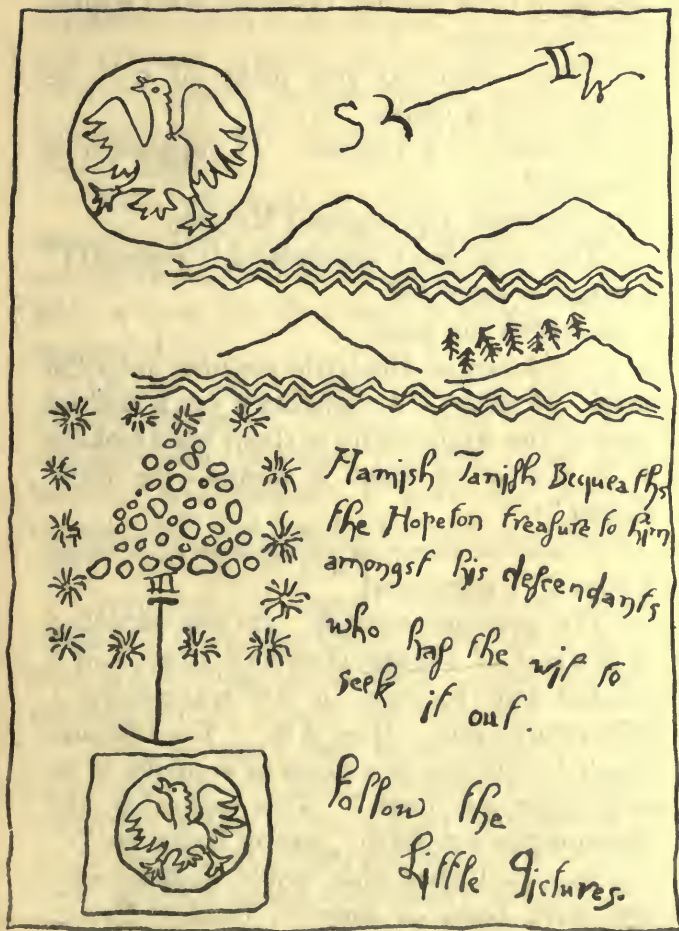 Hamish Taniſh Bequeaths
the Hopeton treaſure to him
amongst his deſcendants
who haſ the wit to
seek it out.
Follow the
Little Pictures.